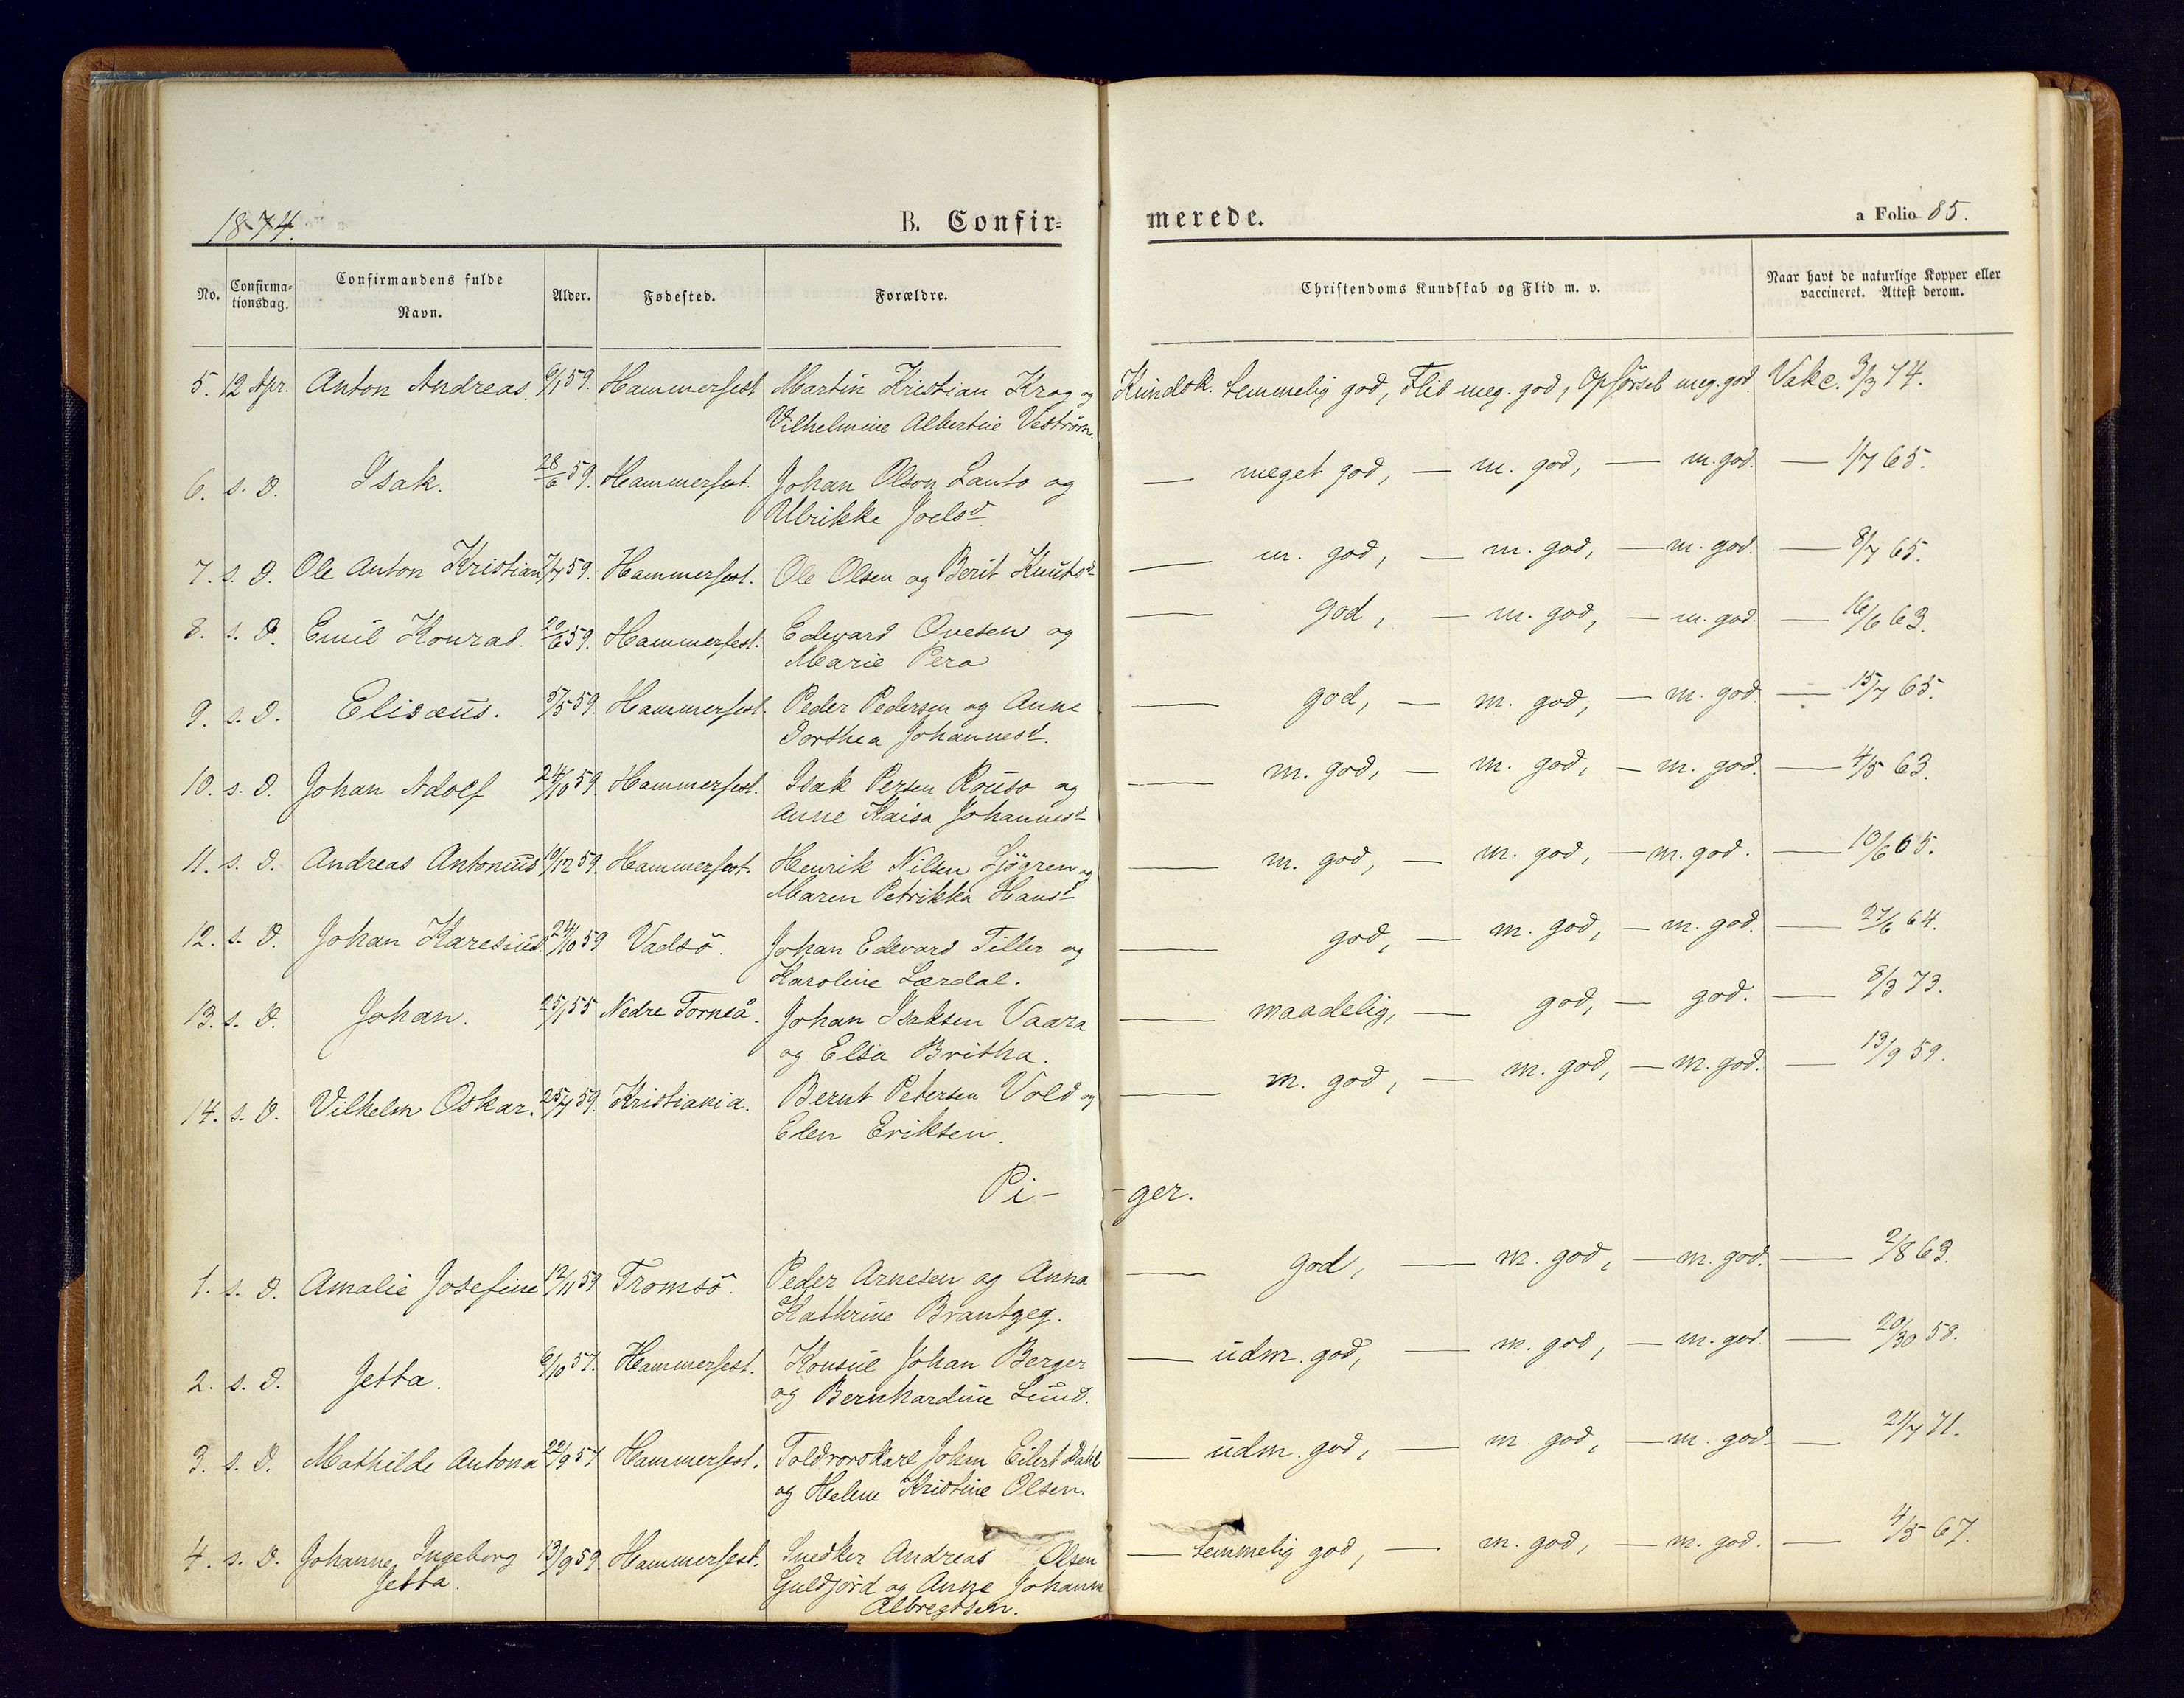 1874.
B. Confir=
merede.
a Folio 85.
No.
Confirma=
tionsdag.
Confirmandens fulde
Navn.
Alder.
Fødested.
Forældre.
Christendoms Kundskab og Flid m. v.
Naar havt de naturlige Kopper eller
vaccineret. Attest derom.
5. 12 Apr. Anton Andreas. 6/1 59. Hammerfest Martin Kristian Krog og Kundsk. temmelig god, Flid meg. god, Opførsel meg. god. Vakc. 3/3 74.
Vilhelmine Albertine
6. s. D. Isak. 28/6 59. Hammerfest. Johan Olsen Lanto og — meget god, — m. god, — m. god. — 1/7 65.
Ulrikke Joelsd.
7. s. D. Ole Anton Kristian 7/7 59. Hammerfest. Ole Olsen og Berit Knutsd — m. god, — m. god, — m. god. — 8/7 65.
8. s. D. Emil Konrad. 20/6 59. Hammerfest. Edevard Ovesen og — god, — m. god, — m. god. — 16/6 63.
Marie Pera
9. s. D. Elisæus. 5/5 59. Hammerfest. Peder Pedersen og Anne — god, — m. god, — m. god. — 15/7 65.
Dorthea Johannesd.
10. s. D. Johan Adolf 24/10 59. Hammerfest. Isak Persen Rouso og — m. god, — m. god, — m. god. — 4/5 63.
Anne Kaisa Johannesd
11. s. D. Andreas Antonius 10/12 59. Hammerfest. Henrik Nilsen Sjögren og — m. god, — m. god, — m. god. — 10/6 65.
Maren Petrikka Hansd
12. s. D. Johan Karesius. 24/10 59 Vadsö. Johan Edevard Tiller og — god, — m. god, — m. god. — 27/6 64.
Karoline Lærdal.
13. s. D. Johan. 25/1 55 Nedre Torneå. Johan Isaksen Vaara — maadelig, — god, — god. — 8/3 73.
og Elsa Britha.
14. s. D. Vilhelm Oskar. 25/7 59. Kristiania. Bernt Petersen Vold og — m. god, — m. god, — m. god. — 13/9 59.
Elen Eriksen.
Pi- -ger.
1. s. D. Amalie Josefine 12/11 59 Tromsö. Peder Arnesen og Anna — god, — m. god, — m. god. — 2/8 63.
Kathrine
2. s. D. Jetta. 6/10 57. Hammerfest. Konsul Johan Berger — udm. god, — m. god, — m. god. — 20/30 58.
og Bernhardine Lund.
3. s. D. Mathilde Antona 22/9 57 Hammerfest. Toldrorskarl Johan Eilert Dahl — udm. god, — m. god, — m. god. — 21/7 71.
og Helene Kristine Olsen.
4. s. D. Johanne Ingeborg 13/9 59. Hammerfest. Snedker Andreas Olsen — temmelig god, — m. god, — m. god. — 4/5 67.
Jetta. Guldjord og Anne Johanne
Albregtsen.